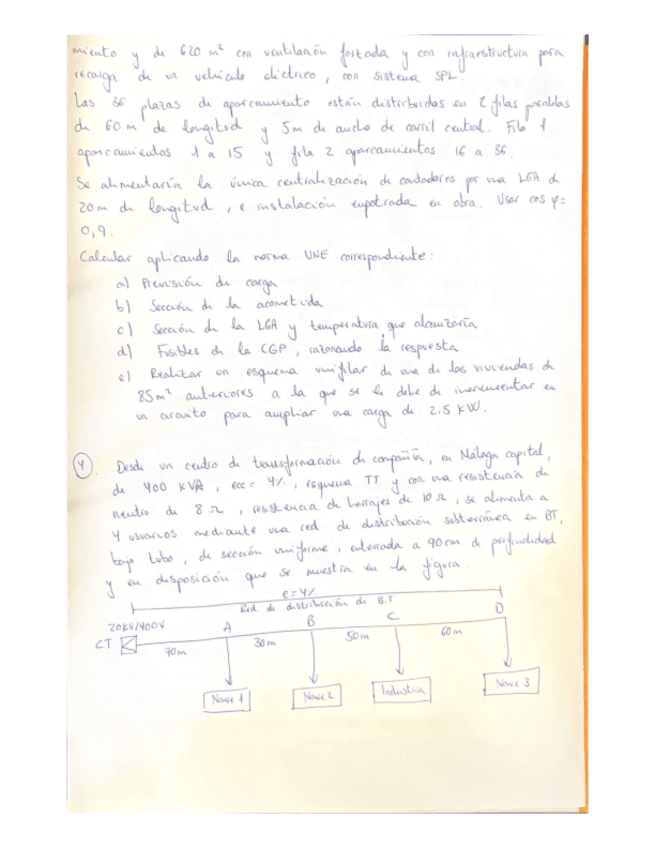 miento y de 620 m² con ventilación forzada y con infraestructura para
recarga de un vehículo eléctrico, con sistema SPL.
Las 36 plazas de aparcamiento están distribuidas en 2 filas paralelas
de 60 m de longitud y 5m de ancho de carril central. Fila 1
aparcamientos 1 a 15 y fila 2 aparcamientos 16 a 36.
Se alimentaría la única centralización de contadores por una LGA de
20m de longitud, e instalación empotrada en obra. Usar cos φ=
0,9.
Calcular aplicando la norma UNE correspondiente:
a) Previsión de carga
b) Sección de la acometida
c) Sección de la LGA y temperatura que alcanzaría
d) Fusibles de la CGP, razonando la respuesta
e) Realizar un esquema unifilar de una de las viviendas de
85m² anteriores a la que se le debe de incrementar en
un circuito para ampliar una carga de 2.5 KW.
4 Desde un centro de transformación de compañía, en Málaga capital,
de 400 KVA, εcc = 4%, esquema TT y con una resistencia de
neutro de 8 Ω, resistencia de herrajes de 10 Ω, se alimenta a
4 usuarios mediante una red de distribución subterránea en BT,
bajo tubo, de sección uniforme, enterrada a 90cm de profundidad
y en disposición que se muestra en la figura.
e=4%
Red de distribución de B.T
20KV/400V A B C D
CT 70m 30m 50m 60m
Nave 1 Nave 2 Industria Nave 3